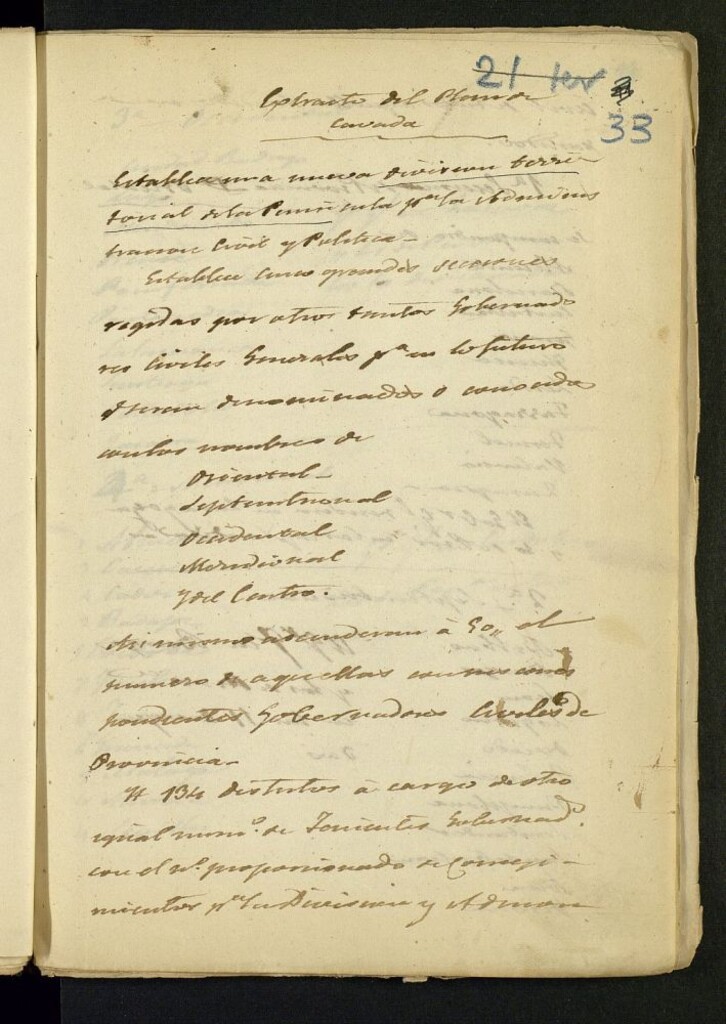 21
33
Extracto del Plan de
Cavada
Establece una nueva division terri-
torial de la Peninsula pª la Adminis
tracion Civil y Politica-
Establece cinco grandes secciones
regidas por otros tantos Gobernado
res Civiles Generales pª en lo futuro
seran denominados o conocidos
con los nombres de
Oriental-
Septentrional
Occidental
Meridional
y del Centro.
Asi mismo ascenderan à 50,, el
numero de aquellas con sus corres
pondientes Gobernadores Civiles de
Provincia-
A 134 distritos à cargo de otro
igual numº. de Tenientes Gobernadˢ.
con el nº. proporcionado de Corregi-
mientos pª la Division y Admon